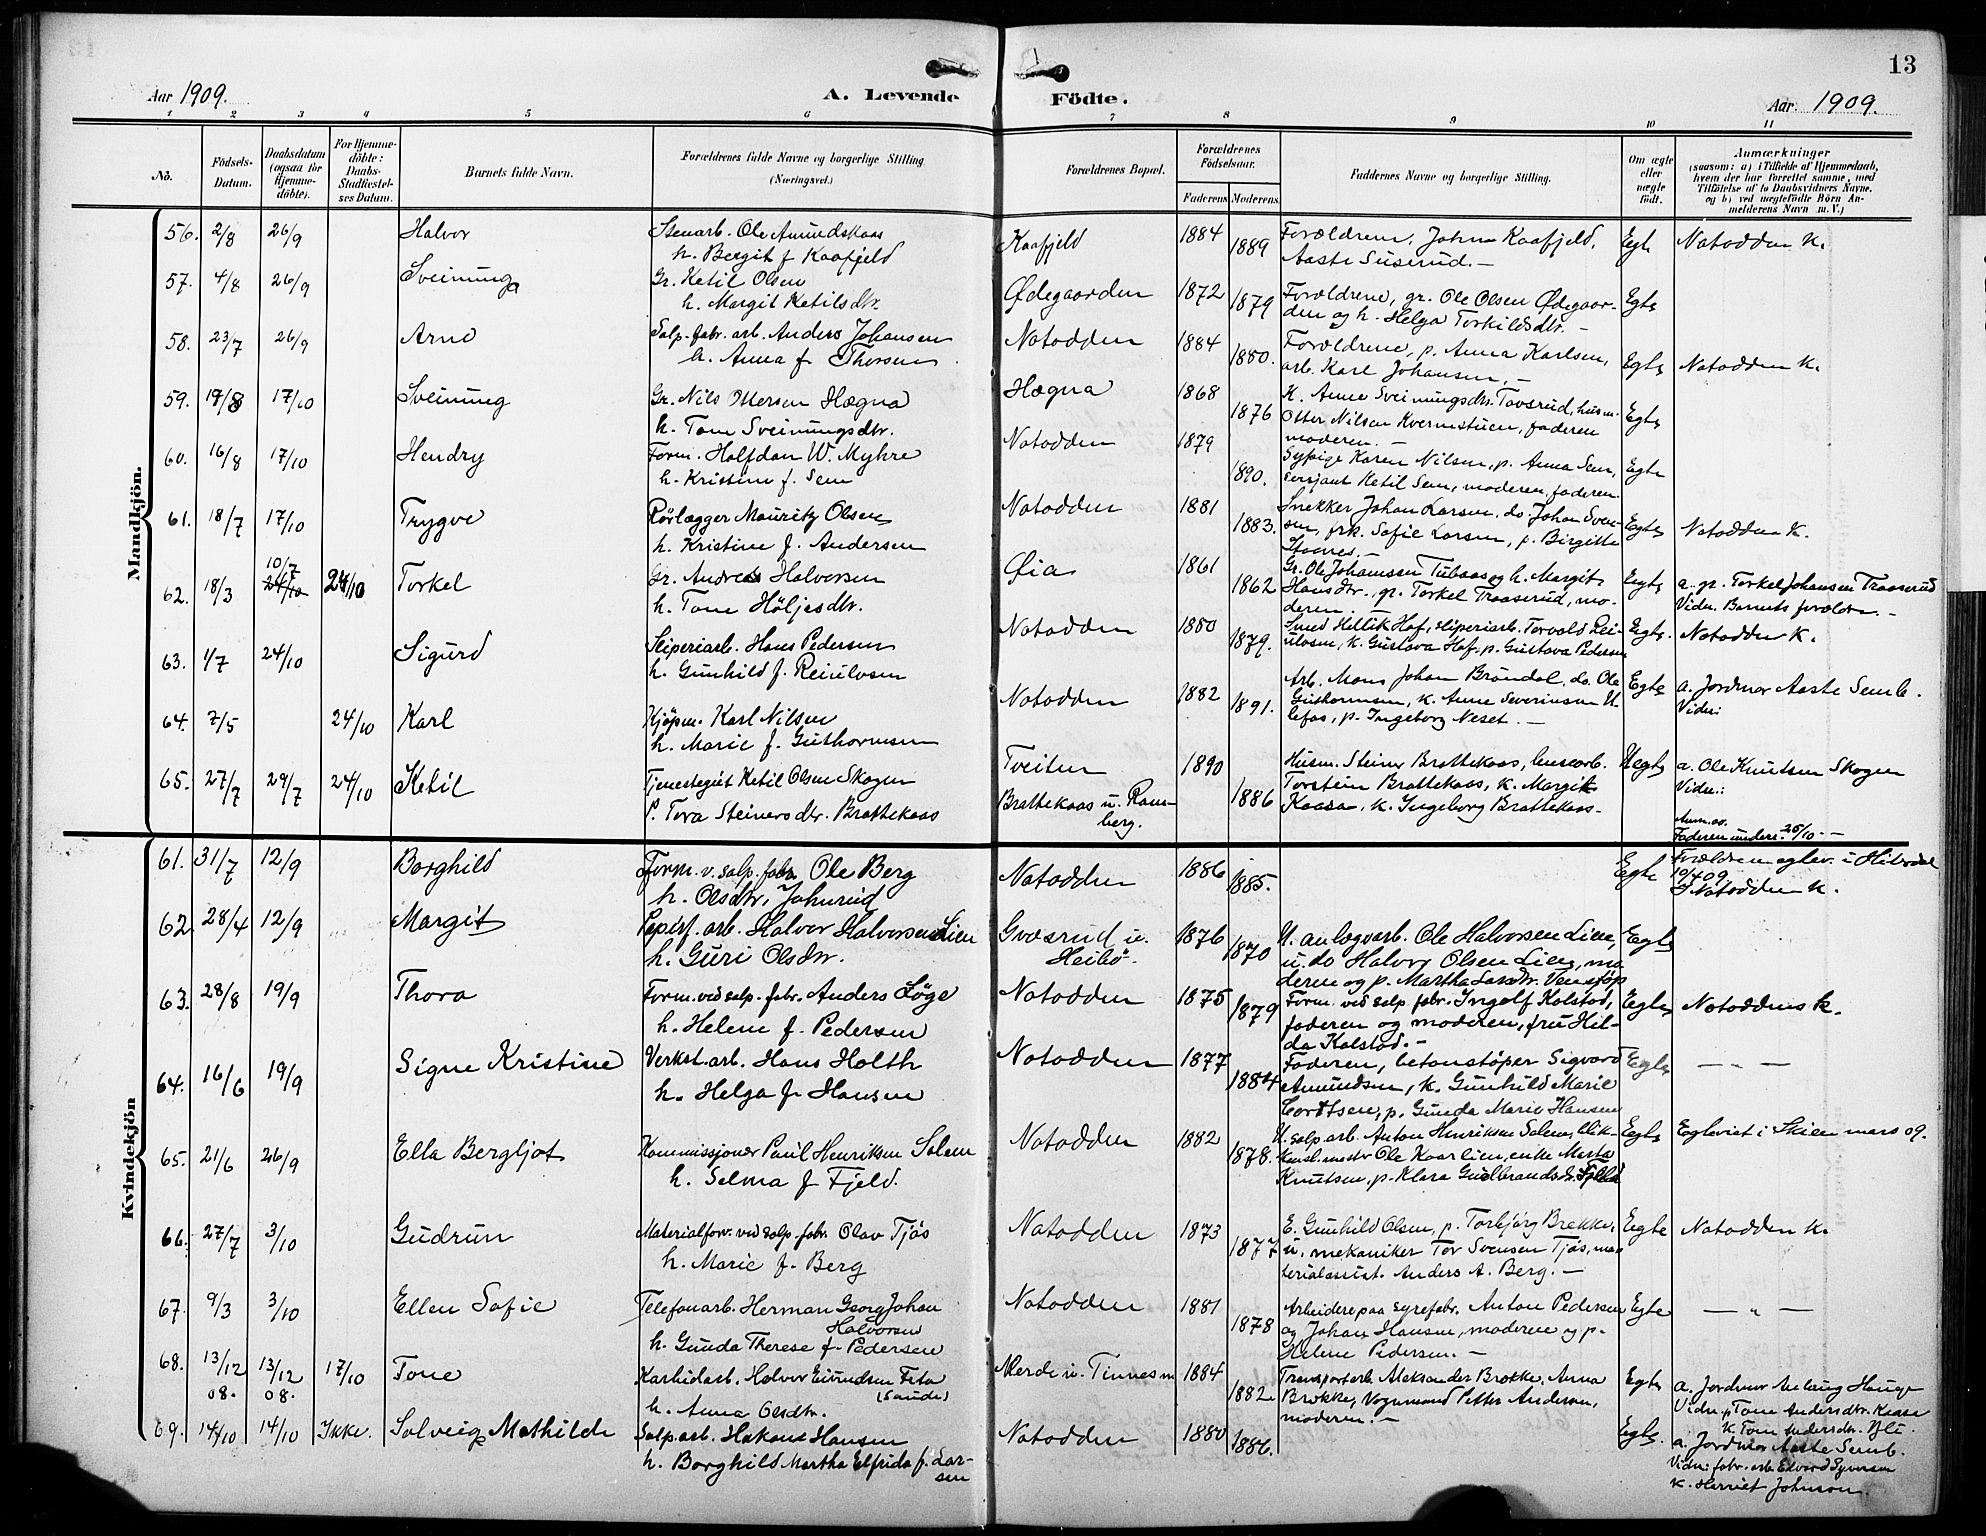 13
Aar 1909.
A. Levende Födte.
Aar 1909.
1 2 3 4 5 6 7 8 9 10 11
No.
Födsels-Datum.
Daabsdatum (ogsaa for Hjemme-döbte).
For Hjemme-döbte: Daabs-Stadfæstel-ses Datum.
Barnets fulde Navn.
Forældrenes fulde Navne og borgerlige Stilling.
(Næringsvei.)
Forældrenes Bopæl.
Forældrenes Födselsaar.
Faderens Moderens
Faddernes Navne og borgerlige Stilling.
Om ægte eller uægte födt.
Anmærkninger
(saasom: a) i Tilfælde af Hjemmedaab, hvem der har forrettet samme, med Tilföielse af to Daabsvidners Navne, og b) ved uægtefödte Börn An-melderens Navn m. V.)
Mandkjön.
56. 2/8 26/9 Halvor Stenarb. Ole Amundskaas Kaafjeld 1884 Forældrene, Johan Kaafjeld, Egte Notodden K.
h. Bergit f. Kaafjeld 1889 Aaste Suserud. —
57. 4/8 26/9 Sveinung Gr. Ketil Olsen Ødegaarden 1872 Forældrene, gr. Ole Olsen Ødegaar- Egte
h. Margit Ketilsdtr. 1879 den og h. Helga Torkildsdtr. —
58. 23/7 26/9 Arne Salp. fabr. arb. Anders Johansen Notodden 1884 Forældrene, p. Anna Karlsen, Egte Notodden K.
h. Anna f. Thorsen 1880. arb. Karl Johansen. —
59. 19/8 17/10 Sveinung Gr. Nils Hægna Hægna 1868 K. Anne Sveinungsdtr. Tovsrud, husm.
h. Tone Sveinungsdtr. 1876 Otter Nilsen Kvernstuen, faderen Egte
moderen. —
60. 16/8 17/10 Hendry Form. Halfdan W. Myhre Notodden 1879 Sypige Karen Nilsen, p. Anna Sem, Egte
h. Kristine f. Sem 1890. sersjant Ketil Sem, moderen, faderen.
61. 18/7 17/10 Trygve Rörlægger Mauritz Olsen Notodden 1881 Snekker Johan Larsen, do. Johan Sven-
h. Kristine f. Andersen 1883. sen, frk. Sofie Larsen, p. Birgitte Egte Notodden K.
62. 18/3 10/7 24/10 24/10 Torkel Gr. Andreas Halvorsen Øia 1861 Gr. Ole Johannsen Tubaas og h. Margit
h. Tone Höljesdtr. 1862 Hansdtr., gr. Torkel Traaserud, mo- Egte a. gr. Torkel Johansen Traaserud
deren. — Vidn. Barnets forældre. —
63. 1/7 24/10 Sigurd Sliperiarb. Hans Pedersen Notodden 1880 Smed Hellik Hof, sliperiarb. Torvald Rei- Egte. Notodden K.
h. Gunhild f. Reiulvsen 1879. ulvsen, k. Gustava Hof, p. Gustava Pedersen
64. 7/5 24/10 Karl Kjöpm. Karl Nilsen Notodden 1882 Arb. Mons Johan Bröndal, do. Ole Egte a. Jordmor Aaste Semb.
h. Marie f. Guthormsen 1891. Guthormsen, k. Anne Severinsen U- Vidn:
lefos, p. Ingeborg Neset. —
65. 27/7 29/7 24/10 Ketil Tjenestegut Ketil Olsen Skogen Tveiten 1890 Husm. Steiner Brattekaas, Uegte a. Ole Knutsen Skogen
P. Tora Steinersdtr. Brattekaas Brattekaas u. Rams-berg. 1886 Torstein Brattekaas, k. Margit Vidn.:
Kaasa, k. Ingeborg Brattekaas.
Faderen underr. 25/10. —
Kvindekjön
61. 31/7 12/9 Borghild Form. v. salp. fabr. Ole Berg Notodden 1886 Egte Forældrene egtev. i Hitterdal
h. Olsdtr. Johnsrud 1885. 10/4 09. Notodden K.
62. 28/4 12/9 Margit Papirf. arb. Halvor Halvorsen Lien Gvæsrud u. Heibö. 1876 U. anlægsarb. Ole Halvorsen Lien, Egte
h. Guri Olsdtr. 1870 u. do Halvor Olsen Lien, mo-
deren og p. Martha Larsdtr. Venstöp
63. 28/8 19/9 Thora Form. ved salp. fabr. Anders Löge Notodden 1875 Form. ved salp fabr. Ingolf Kolstad, Egte Notoddens K.
h. Helene f. Pedersen 1879 faderen og moderen, fru Hil-
da Kolstad. —
64. 16/6 19/9 Signe Kristine Verkst. arb. Hans Holth Notodden 1877 Faderen, betonstöper Sigvard Egte — " —
h. Helga f. Hansen 1884 Amundsen, k. Gunhild Marie
p. Gunda Marie Hansen
65. 21/6 26/9 Ella Bergljot Kommissjonær Paul Henriksen Solem Notodden 1882 U. salp. arb. Anton Henriksen Solem, blik- Egte Egteviet i Skien mars 09.
h. Selma f. Fjeld. 1878. Ole Kaarlien, enke Marta
Knutsen, p. Klara Gulbrandsdtr. Fjeld
66. 27/7 3/10 Gudrun Materialforv. ved salp. fabr. Olav Tjös Notodden 1873 E. Gunhild Olsen, p. Torbjörg Brekke, Egte Notodden K.
h. Marie f. Berg 1877 u. mekaniker Tor Svensen Tjös, ma-
terialassist. Anders A. Berg. —
67. 9/3 3/10 Ellen Sofie Telefonarb. Herman Georg Johan Halvorsen Notodden 1881 Arbeidere paa syrefabr. Anton Pedersen Egte — " —
h. Gunda Therese f. Pedersen 1878 og Johan Hansen, moderen og p.
Helene Pedersen. —
68. 13/12 08. 13/12 08. 17/10 Tone Karbidarb. Halvor Eivindsen Fita (Sande) Merde u. Tinnesm 1884 Transportarb. Aleksander Brokke, Anna Egte a. Jordmor Anlaug Hauge
h. Anna Olsdtr. 1882 Brokke, Vognmand Petter Andersen, Vidn. p. Tone Andersdtr. Kaasa
moderen. — k. Tone Andersdtr. Bli.
69. 14/10 14/10 Ikke. Solveig Mathilde Salp. arb. Hakans Hansen Notodden 1880 Egte. a. Jordmor Aaste Semb.
h. Borghild Martha Elfrida f. Lar-sen 1886. Vidn: fabr. arb. Edvard Syversen
k. Herriet Johnson.